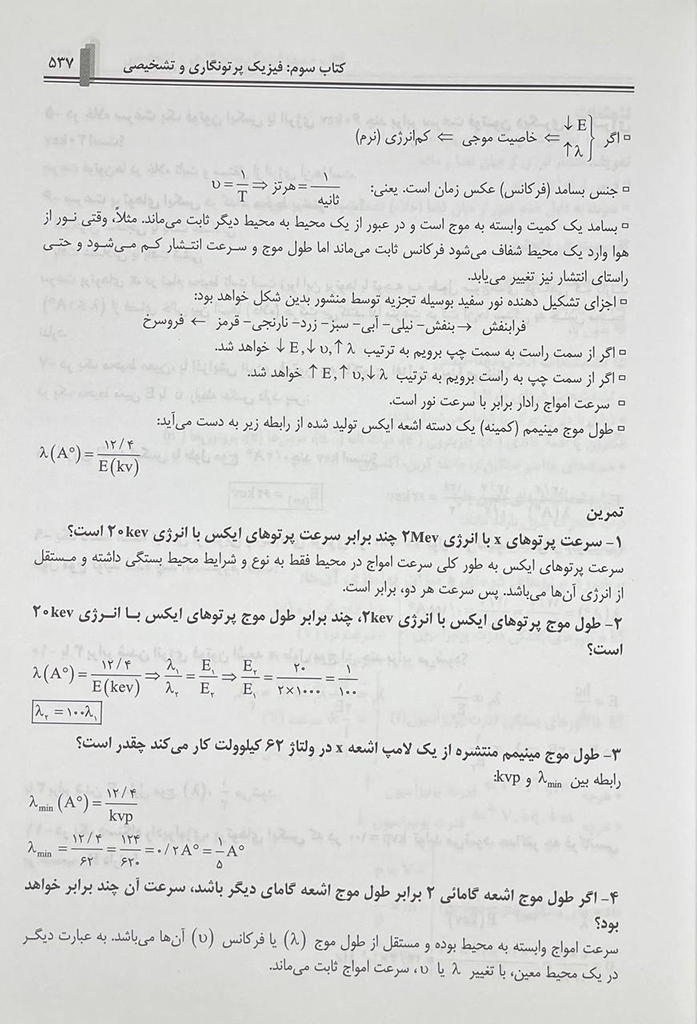 کتاب سوم: فیزیک پرتونگاری و تشخیصی ۵۳۷
□ اگر ↓E ↑λ } ⇐ خاصیت موجی ⇐ کم‌انرژی (نرم)
□ جنس بسامد (فرکانس) عکس زمان است. یعنی: ۱/ثانیه = هرتز ⇒ υ = ۱/T
□ بسامد یک کمیت وابسته به موج است و در عبور از یک محیط به محیط دیگر ثابت می‌ماند. مثلاً، وقتی نور از
هوا وارد یک محیط شفاف می‌شود فرکانس ثابت می‌ماند اما طول موج و سرعت انتشار کم می‌شود و حتی
راستای انتشار نیز تغییر می‌یابد.
□ اجزای تشکیل دهنده نور سفید بوسیله تجزیه توسط منشور بدین شکل خواهد بود:
فرابنفش → بنفش- نیلی- آبی- سبز- زرد- نارنجی- قرمز ← فروسرخ
□ اگر از سمت راست به سمت چپ برویم به ترتیب ↓E,↓υ,↑λ خواهد شد.
□ اگر از سمت چپ به راست برویم به ترتیب ↑E,↑υ,↓λ خواهد شد.
□ سرعت امواج رادار برابر با سرعت نور است.
□ طول موج مینیمم (کمینه) یک دسته اشعه ایکس تولید شده از رابطه زیر به دست می‌آید:
λ(A°) = ۱۲/۴ / E(kv)
تمرین
۱- سرعت پرتوهای x با انرژی ۲Mev چند برابر سرعت پرتوهای ایکس با انرژی ۲۰kev است؟
سرعت پرتوهای ایکس به طور کلی سرعت امواج در محیط فقط به نوع و شرایط محیط بستگی داشته و مستقل
از انرژی آن‌ها می‌باشد. پس سرعت هر دو، برابر است.
۲- طول موج پرتوهای ایکس با انرژی ۲kev، چند برابر طول موج پرتوهای ایکس با انرژی ۲۰kev
است؟
λ(A°) = ۱۲/۴ / E(kev) ⇒ λ₁/λ₂ = E₁/E₂ ⇒ E₂/E₁ = ۲۰ / ۲×۱۰۰۰ = ۱/۱۰۰
λ₂ = ۱۰۰λ₁
۳- طول موج مینیمم منتشره از یک لامپ اشعه x در ولتاژ ۶۲ کیلوولت کار می‌کند چقدر است؟
رابطه بین λmin و kvp:
λmin (A°) = ۱۲/۴ / kvp
λmin = ۱۲/۴ / ۶۲ = ۱۲۴/۶۲۰ = ۰/۲A° = ۱/۵ A°
۴- اگر طول موج اشعه گامائی ۲ برابر طول موج اشعه گامای دیگر باشد، سرعت آن چند برابر خواهد
بود؟
سرعت امواج وابسته به محیط بوده و مستقل از طول موج (λ) یا فرکانس (υ) آن‌ها می‌باشد. به عبارت دیگر
در یک محیط معین، با تغییر λ یا υ، سرعت امواج ثابت می‌ماند.